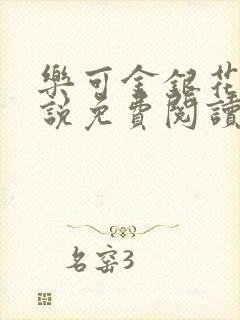 樂可金銀花
說免費閱讀
名窑3